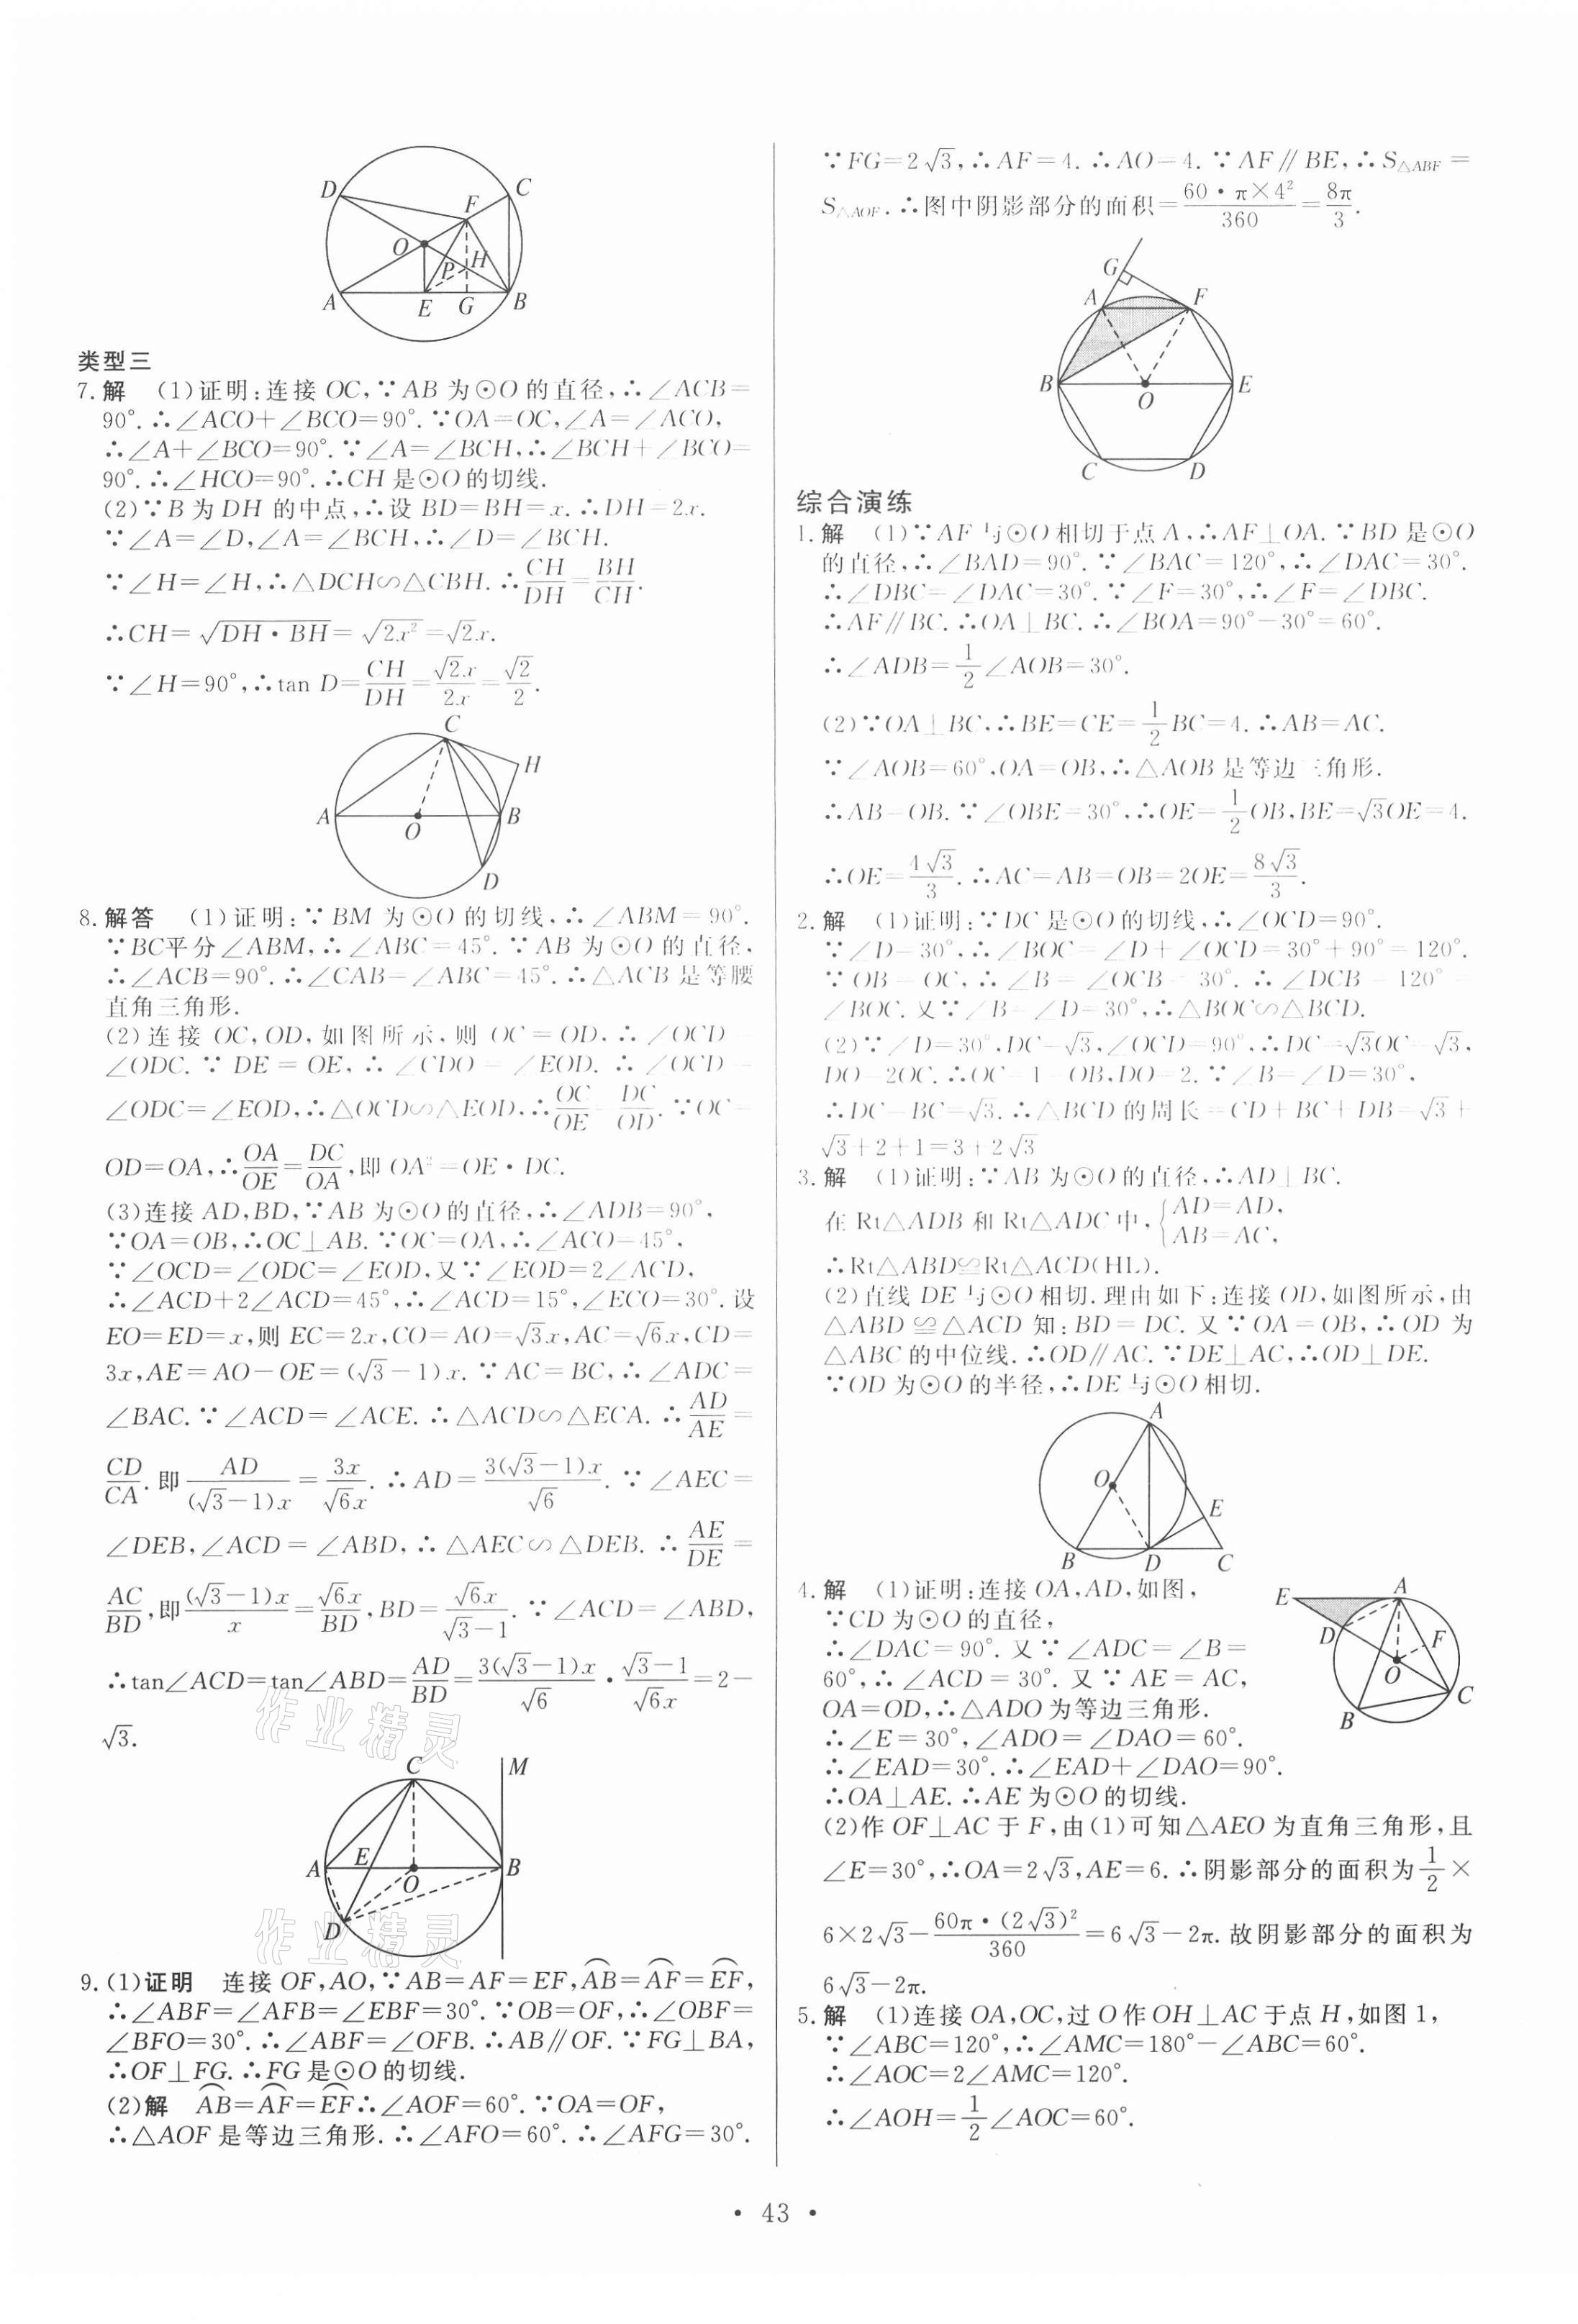 D
C
F
O
P
H
A
E
G
B
类型三
7.解 (1)证明:连接 OC,∵AB 为⊙O 的直径,∴∠ACB=
90°.∴∠ACO+∠BCO=90°.∵OA=OC,∠A=∠ACO,
∴∠A+∠BCO=90°.∵∠A=∠BCH,∴∠BCH+∠BCO=
90°.∴∠HCO=90°.∴CH 是⊙O 的切线.
(2)∵B 为 DH 的中点,∴设 BD=BH=x.∴DH=2x.
∵∠A=∠D,∠A=∠BCH,∴∠D=∠BCH.
∵∠H=∠H,∴△DCH∽△CBH.∴CH/DH=BH/CH.
∴CH=√(DH·BH)=√(2x²)=√2x.
∵∠H=90°,∴tan D=CH/DH=√2x/2x=√2/2.
C
H
A
O
B
D
8.解答 (1)证明:∵BM 为⊙O 的切线,∴∠ABM=90°.
∵BC平分∠ABM,∴∠ABC=45°.∵AB 为⊙O 的直径,
∴∠ACB=90°.∴∠CAB=∠ABC=45°.∴△ACB 是等腰
直角三角形.
(2)连接 OC,OD,如图所示,则 OC=OD,∴∠OCD=
∠ODC.∵DE=OE,∴∠CDO=∠EOD.∴∠OCD=
∠ODC=∠EOD,∴△OCD∽△EOD,∴OC/OE=DC/OD.∵OC=
OD=OA,∴OA/OE=DC/OA,即 OA²=OE·DC.
(3)连接 AD,BD,∵AB 为⊙O 的直径,∴∠ADB=90°,
∵OA=OB,∴OC⊥AB.∵OC=OA,∴∠ACO=45°,
∵∠OCD=∠ODC=∠EOD,又∵∠EOD=2∠ACD,
∴∠ACD+2∠ACD=45°,∴∠ACD=15°,∠ECO=30°.设
EO=ED=x,则 EC=2x,CO=AO=√3x,AC=√6x,CD=
3x,AE=AO-OE=(√3-1)x.∵AC=BC,∴∠ADC=
∠BAC.∵∠ACD=∠ACE.∴△ACD∽△ECA.∴AD/AE=
CD/CA.即AD/((√3-1)x)=3x/(√6x).∴AD=3(√3-1)x/√6.∵∠AEC=
∠DEB,∠ACD=∠ABD,∴△AEC∽△DEB.∴AE/DE=
AC/BD,即(√3-1)x/x=√6x/BD,BD=√6x/(√3-1).∵∠ACD=∠ABD,
∴tan∠ACD=tan∠ABD=AD/BD=3(√3-1)x/√6·(√3-1)/(√6x)=2-
√3.
作业精灵
C
M
A
E
O
B
D
作业精灵
9.(1)证明 连接 OF,AO,∵AB=AF=EF,⌒AB=⌒AF=⌒EF,
∴∠ABF=∠AFB=∠EBF=30°.∵OB=OF,∴∠OBF=
∠BFO=30°.∴∠ABF=∠OFB.∴AB∥OF.∵FG⊥BA,
∴OF⊥FG.∴FG 是⊙O 的切线.
(2)解 ⌒AB=⌒AF=⌒EF∴∠AOF=60°.∵OA=OF,
∴△AOF 是等边三角形.∴∠AFO=60°.∴∠AFG=30°.
∵FG=2√3,∴AF=4.∴AO=4.∵AF∥BE,∴S△ABF=
S△AOF.∴图中阴影部分的面积=60·π×4²/360=8π/3.
G
A
F
B
E
O
C
D
综合演练
1.解 (1)∵AF 与⊙O 相切于点 A,∴AF⊥OA.∵BD 是⊙O
的直径,∴∠BAD=90°.∵∠BAC=120°,∴∠DAC=30°.
∴∠DBC=∠DAC=30°.∵∠F=30°,∴∠F=∠DBC.
∴AF∥BC.∴OA⊥BC.∴∠BOA=90°-30°=60°.
∴∠ADB=1/2∠AOB=30°.
(2)∵OA⊥BC,∴BE=CE=1/2BC=4.∴AB=AC.
∵∠AOB=60°,OA=OB,∴△AOB 是等边三角形.
∴AB=OB.∵∠OBE=30°,∴OE=1/2OB,BE=√3OE=4.
∴OE=4√3/3.∴AC=AB=OB=2OE=8√3/3.
2.解 (1)证明:∵DC 是⊙O 的切线,∴∠OCD=90°.
∵∠D=30°,∴∠BOC=∠D+∠OCD=30°+90°=120°.
∵OB=OC,∴∠B=∠OCB=30°.∴∠DCB=120°=
∠BOC.又∵∠B=∠D=30°,∴△BOC∽△BCD.
(2)∵∠D=30°,DC=√3,∠OCD=90°,∴DC=√3OC=√3,
DO=2OC.∴OC=1=OB,DO=2.∵∠B=∠D=30°,
∴DC=BC=√3.∴△BCD 的周长=CD+BC+DB=√3+
√3+2+1=3+2√3
3.解 (1)证明:∵AB 为⊙O 的直径,∴AD⊥BC.
在 Rt△ADB 和 Rt△ADC 中,{AD=AD, AB=AC,
∴Rt△ABD≌Rt△ACD(HL).
(2)直线 DE 与⊙O 相切.理由如下:连接 OD,如图所示,由
△ABD≌△ACD 知:BD=DC.又∵OA=OB,∴OD 为
△ABC 的中位线.∴OD∥AC.∵DE⊥AC,∴OD⊥DE.
∵OD 为⊙O 的半径,∴DE 与⊙O 相切.
A
O
E
B
D
C
4.解 (1)证明:连接 OA,AD,如图,
∵CD 为⊙O 的直径,
∴∠DAC=90°.又∵∠ADC=∠B=
60°,∴∠ACD=30°.又∵AE=AC,
OA=OD,∴△ADO 为等边三角形.
∴∠E=30°,∠ADO=∠DAO=60°.
∴∠EAD=30°.∴∠EAD+∠DAO=90°.
∴OA⊥AE.∴AE 为⊙O 的切线.
E
A
D
F
O
C
B
(2)作 OF⊥AC 于 F,由(1)可知△AEO 为直角三角形,且
∠E=30°,∴OA=2√3,AE=6.∴阴影部分的面积为1/2×
6×2√3-60π·(2√3)²/360=6√3-2π.故阴影部分的面积为
6√3-2π.
5.解 (1)连接 OA,OC,过 O 作 OH⊥AC 于点 H,如图 1,
∵∠ABC=120°,∴∠AMC=180°-∠ABC=60°.
∴∠AOC=2∠AMC=120°.
∴∠AOH=1/2∠AOC=60°.
· 43 ·